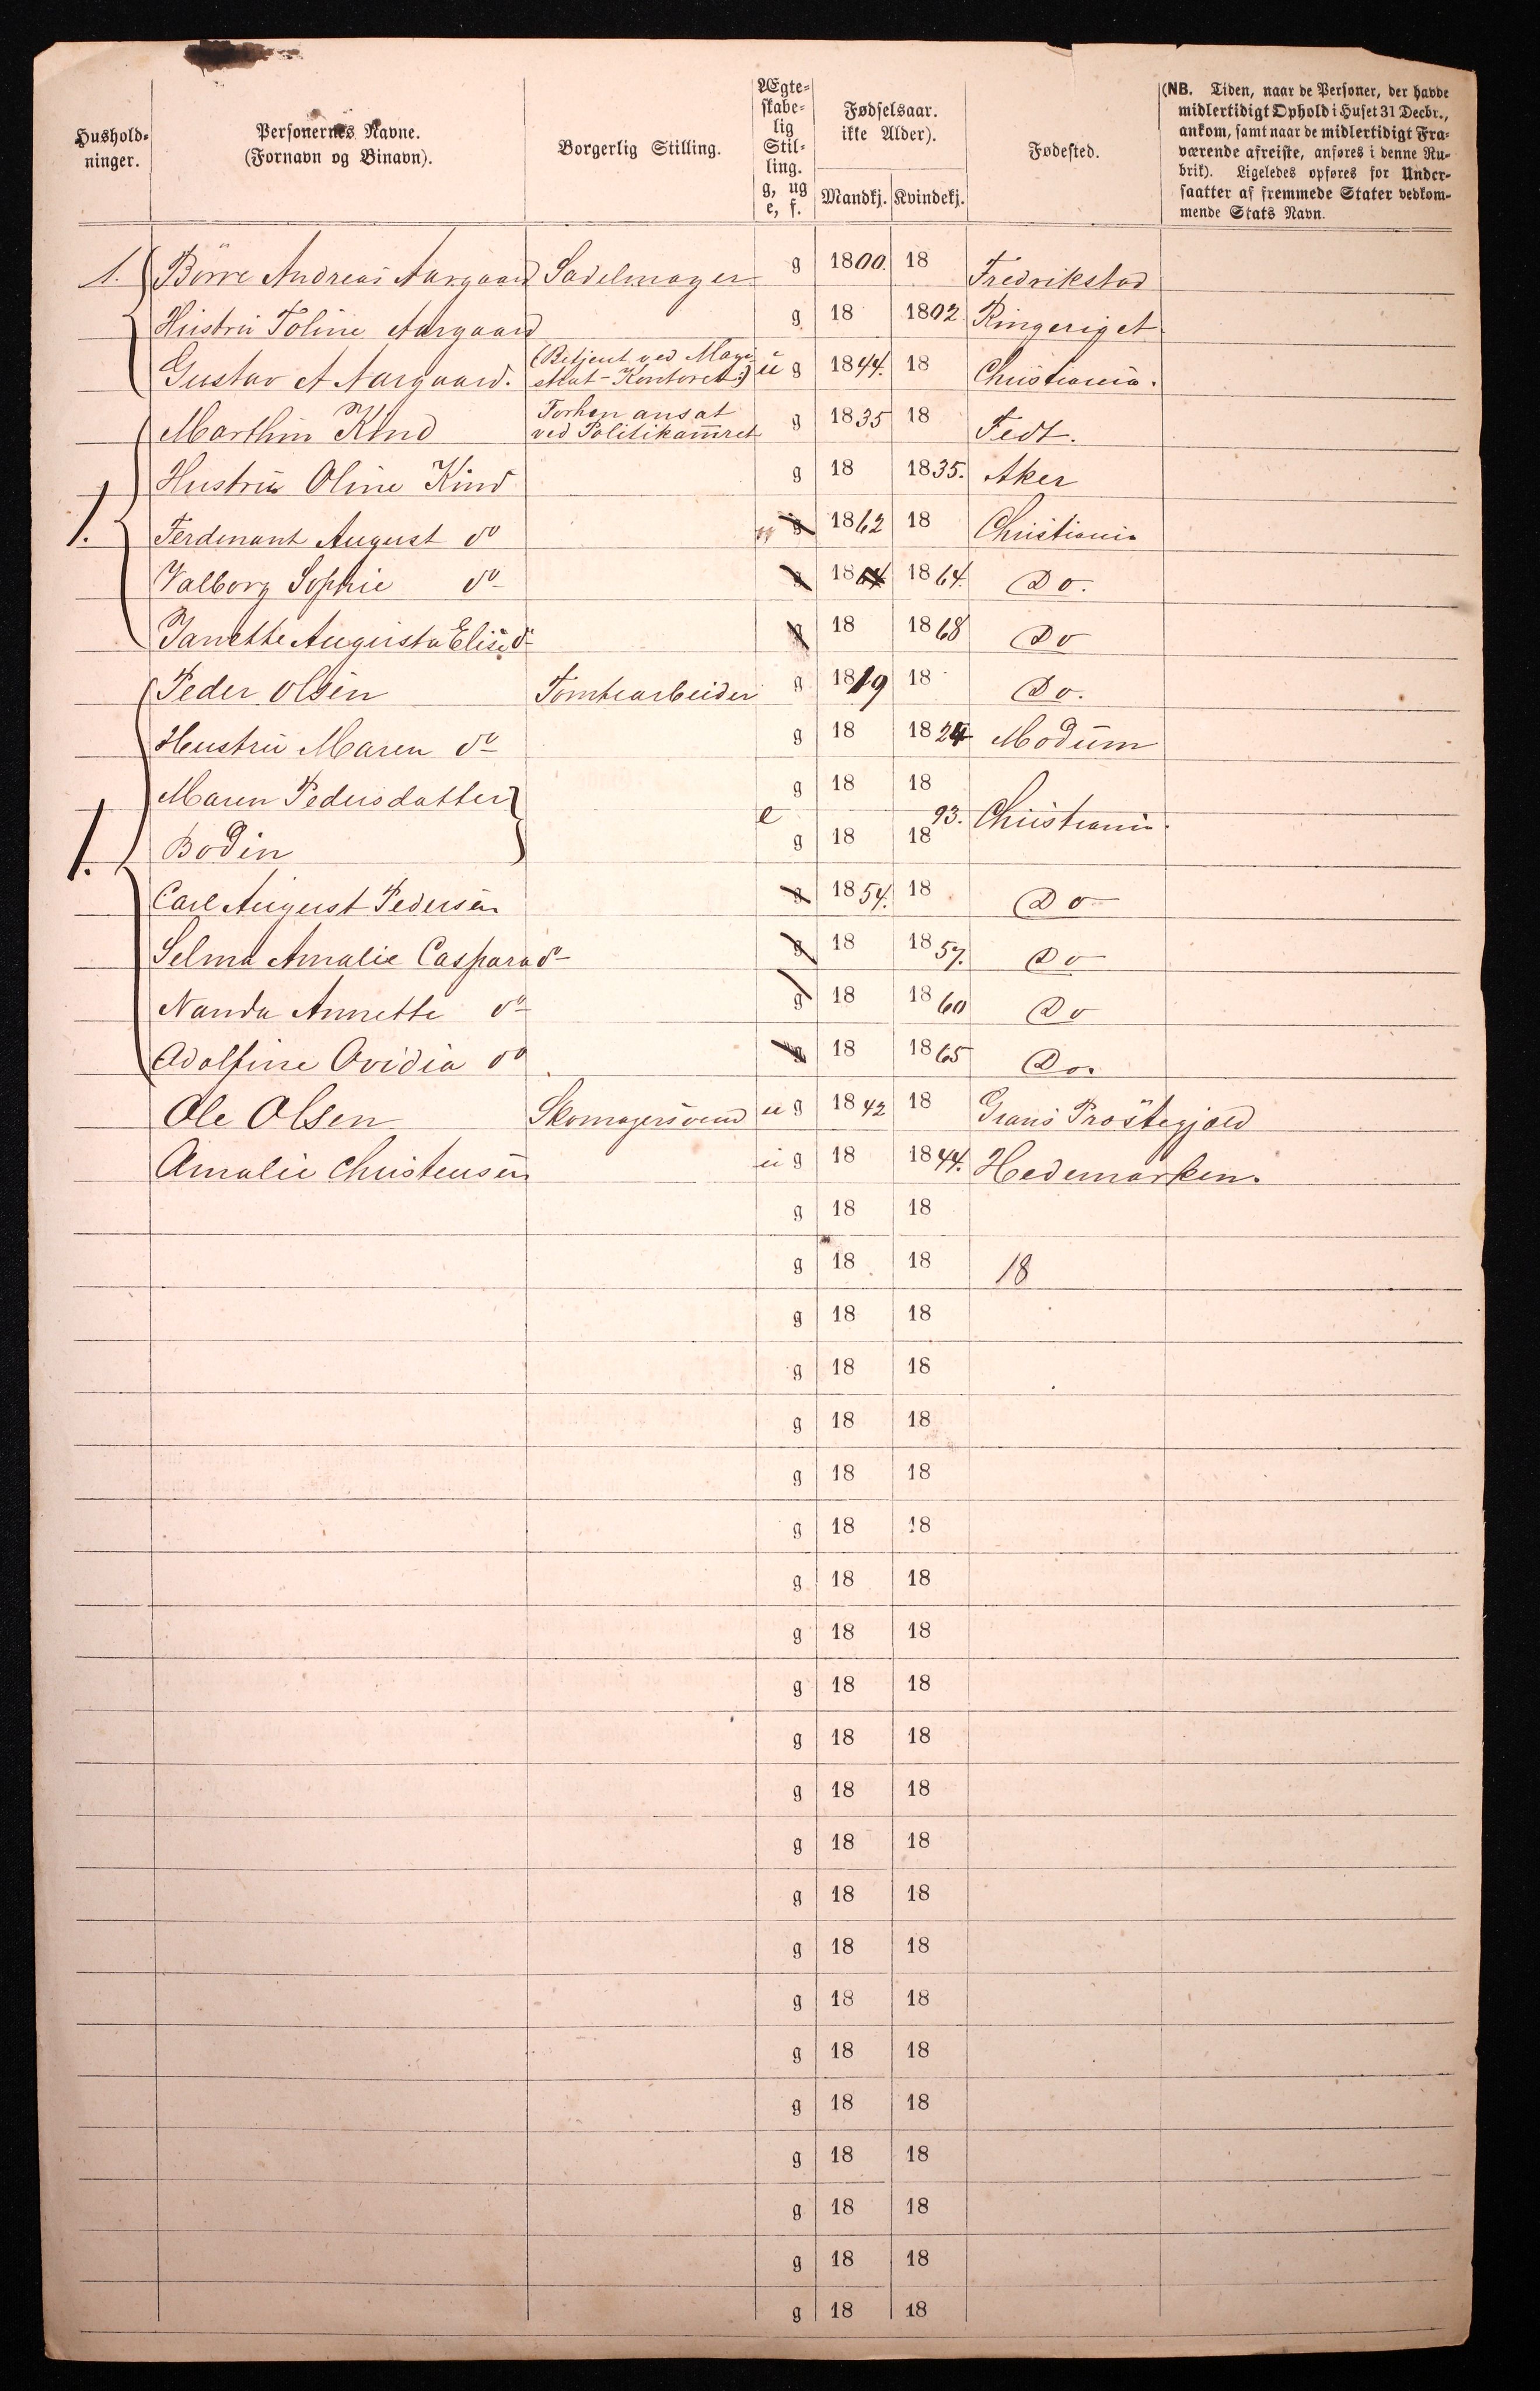 Hushold-
ninger.
Personernes Navne.
(Fornavn og Binavn).
Borgerlig Stilling.
Ægte-
skabe-
lig
Stil-
ling.
g, ug
e, f.
Fødselsaar.
ikke Alder).
Mandkj. Kvindekj.
Fødested.
(NB. Tiden, naar de Personer, der havde
midlertidigt Ophold i Huset 31 Decbr.,
ankom, samt naar de midlertidigt Fra-
værende afreiste, anføres i denne Ru-
brik). Ligeledes opføres for Under-
saatter af fremmede Stater vedkom-
mende Stats Navn.
1. Børre Andreas Aargaard Sadelmager g 1800. 18 Fredrikstad
Hustru Toline Aargaard g 18 1802 Ringeriget
Gustav A Aargaard. (Betjent ved Magi-
strat-Kontoret) u g 1844. 18 Christiania.
Marthin Kind Forhen ansat
ved Politikamret g 1835 18 Fedt.
Hustru Oline Kind g 18 1835. Aker
1. Ferdinant August do g 1862 18 Christiania
Valborg Sophie do g 1864 1864. Do.
Janette Augusta Elise do g 18 1868 Do
Peder Olsen Tomtearbeider g 1819 18 Do.
Hustru Maren do g 18 1824 Modum
Maren Pedersdatter g 18 18
1. Bodin e g 18 1893. Christiania.
Carl August Pedersen g 1854. 18 Do
Selma Amalie Caspara do g 18 1857. Do
Nanda Annette do g 18 1860 Do
Adolfine Ovidia do g 18 1865 Do.
Ole Olsen Skomagersvend u g 1842 18 Grans Prøstegjæld
Amalie Christensen u g 18 1844. Hedemarken.
g 18 18
g 18 18 18
g 18 18
g 18 18
g 18 18
g 18 18
g 18 18
g 18 18
g 18 18
g 18 18
g 18 18
g 18 18
g 18 18
g 18 18
g 18 18
g 18 18
g 18 18
g 18 18
g 18 18
g 18 18
g 18 18
g 18 18